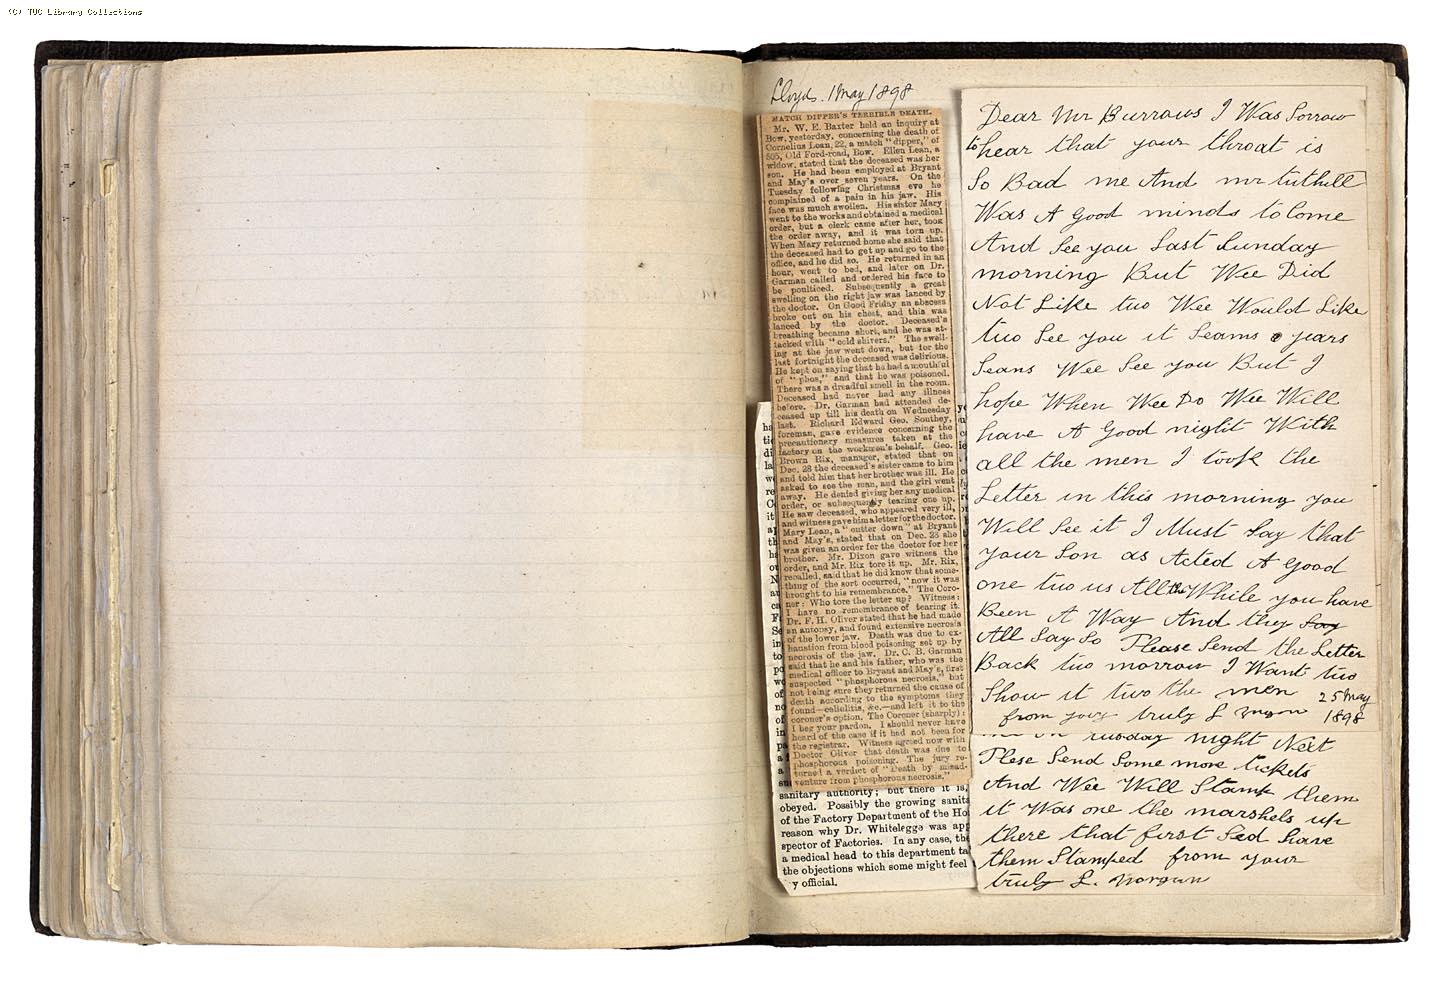 (C) TUC Library Collections
Lloyds. 1 May 1898
MATCH DIPPER'S TERRIBLE DEATH.
Mr. W. E. Baxter held an inquiry at
Bow, yesterday, concerning the death of
Cornelius Lean, 22, a match "dipper," of
505, Old Ford-road, Bow. Ellen Lean, a
widow, stated that the deceased was her
son. He had been employed at Bryant
and May's over seven years. On the
Tuesday following Christmas eve he
complained of a pain in his jaw. His
face was much swollen. His sister Mary
went to the works and obtained a medical
order, but a clerk came after her, took
the order away, and it was torn up.
When Mary returned home she said that
the deceased had to get up and go to the
office, and he did so. He returned in an
hour, went to bed, and later on Dr.
Garman called and ordered his face to
be poulticed. Subsequently a great
swelling on the right jaw was lanced by
the doctor. On Good Friday an abscess
broke out on his chest, and this was
lanced by the doctor. Deceased's
breathing became short, and he was at-
tacked with "cold shivers." The swell-
ing at the jaw went down, but for the
last fortnight the deceased was delirious.
He kept on saying that he had a mouthful
of "phos," and that he was poisoned.
There was a dreadful smell in the room.
Deceased had never had any illness
before. Dr. Garman had attended de-
ceased up till his death on Wednesday
last. Richard Edward Geo. Southey,
foreman, gave evidence concerning the
precautionary measures taken at the
factory on the workmen's behalf. Geo.
Brown Rix, manager, stated that on
Dec. 28 the deceased's sister came to him
and told him that her brother was ill. He
asked to see the man, and the girl went
away. He denied giving her any medical
order, or subsequently tearing one up.
He saw deceased, who appeared very ill,
and witness gave him a letter for the doctor.
Mary Lean, a "cutter down" at Bryant
and May's, stated that on Dec. 28 she
was given an order for the doctor for her
brother. Mr. Dixon gave witness the
order, and Mr. Rix tore it up. Mr. Rix,
recalled, said that he did know that some-
thing of the sort occurred, "now it was
brought to his remembrance." The Coro-
ner: Who tore the letter up? Witness:
I have no remembrance of tearing it.
Dr. F. H. Oliver stated that he had made
an autopsy, and found extensive necrosis
of the lower jaw. Death was due to ex-
haustion from blood poisoning set up by
necrosis of the jaw. Dr. C. B. Garman
said that he and his father, who was the
medical officer to Bryant and May's, first
suspected "phosphorous necrosis," but
not being sure they returned the cause of
death according to the symptoms they
found—cellulitis, &c.—and left it to the
coroner's option. The Coroner (sharply):
I beg your pardon. I should never have
heard of the case if it had not been for
the registrar. Witness agreed now with
Doctor Oliver that death was due to
phosphorous poisoning. The jury re-
turned a verdict of "Death by misad-
venture from phosphorous necrosis."
sanitary authority; but there it is,
obeyed. Possibly the growing sanita
of the Factory Department of the Ho
reason why Dr. Whitelegge was app
spector of Factories. In any case, the
a medical head to this department ta
the objections which some might feel
y official.
Dear Mr Burrows I Was Sorrow
to hear that your throat is
So Bad me And mr tuthill
Was A good minds to Come
And See you Last Sunday
morning But Wee Did
Not Like two Wee Would Like
two See you it Seams years
Seans Wee See you But I
hope When Wee Do Wee Will
have A Good night With
all the men I took the
Letter in this morning you
Will See it I Must Say that
your Son as Acted A good
one two us All the While you have
Been A Way And they Say
All Say So Please Send the Letter
Back two morrow I Want two
Show it two the men 25 May
from your truly L 1898
night Next
Plese Send Some more tickets
And Wee Will Stamp them
it Was one the marshels up
there that first Sed have
them Stamped from your
truly L.